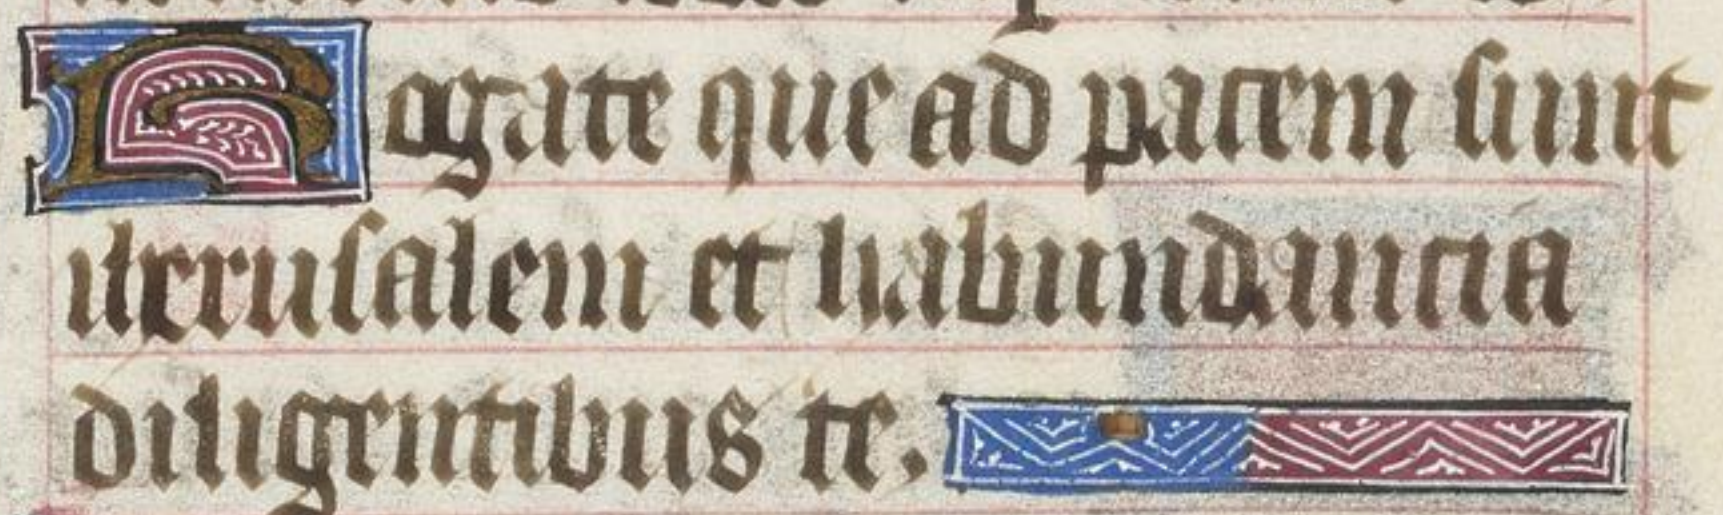 Rogate que ad pacem sunt
iherusalem et habundancia
diligentibus te.